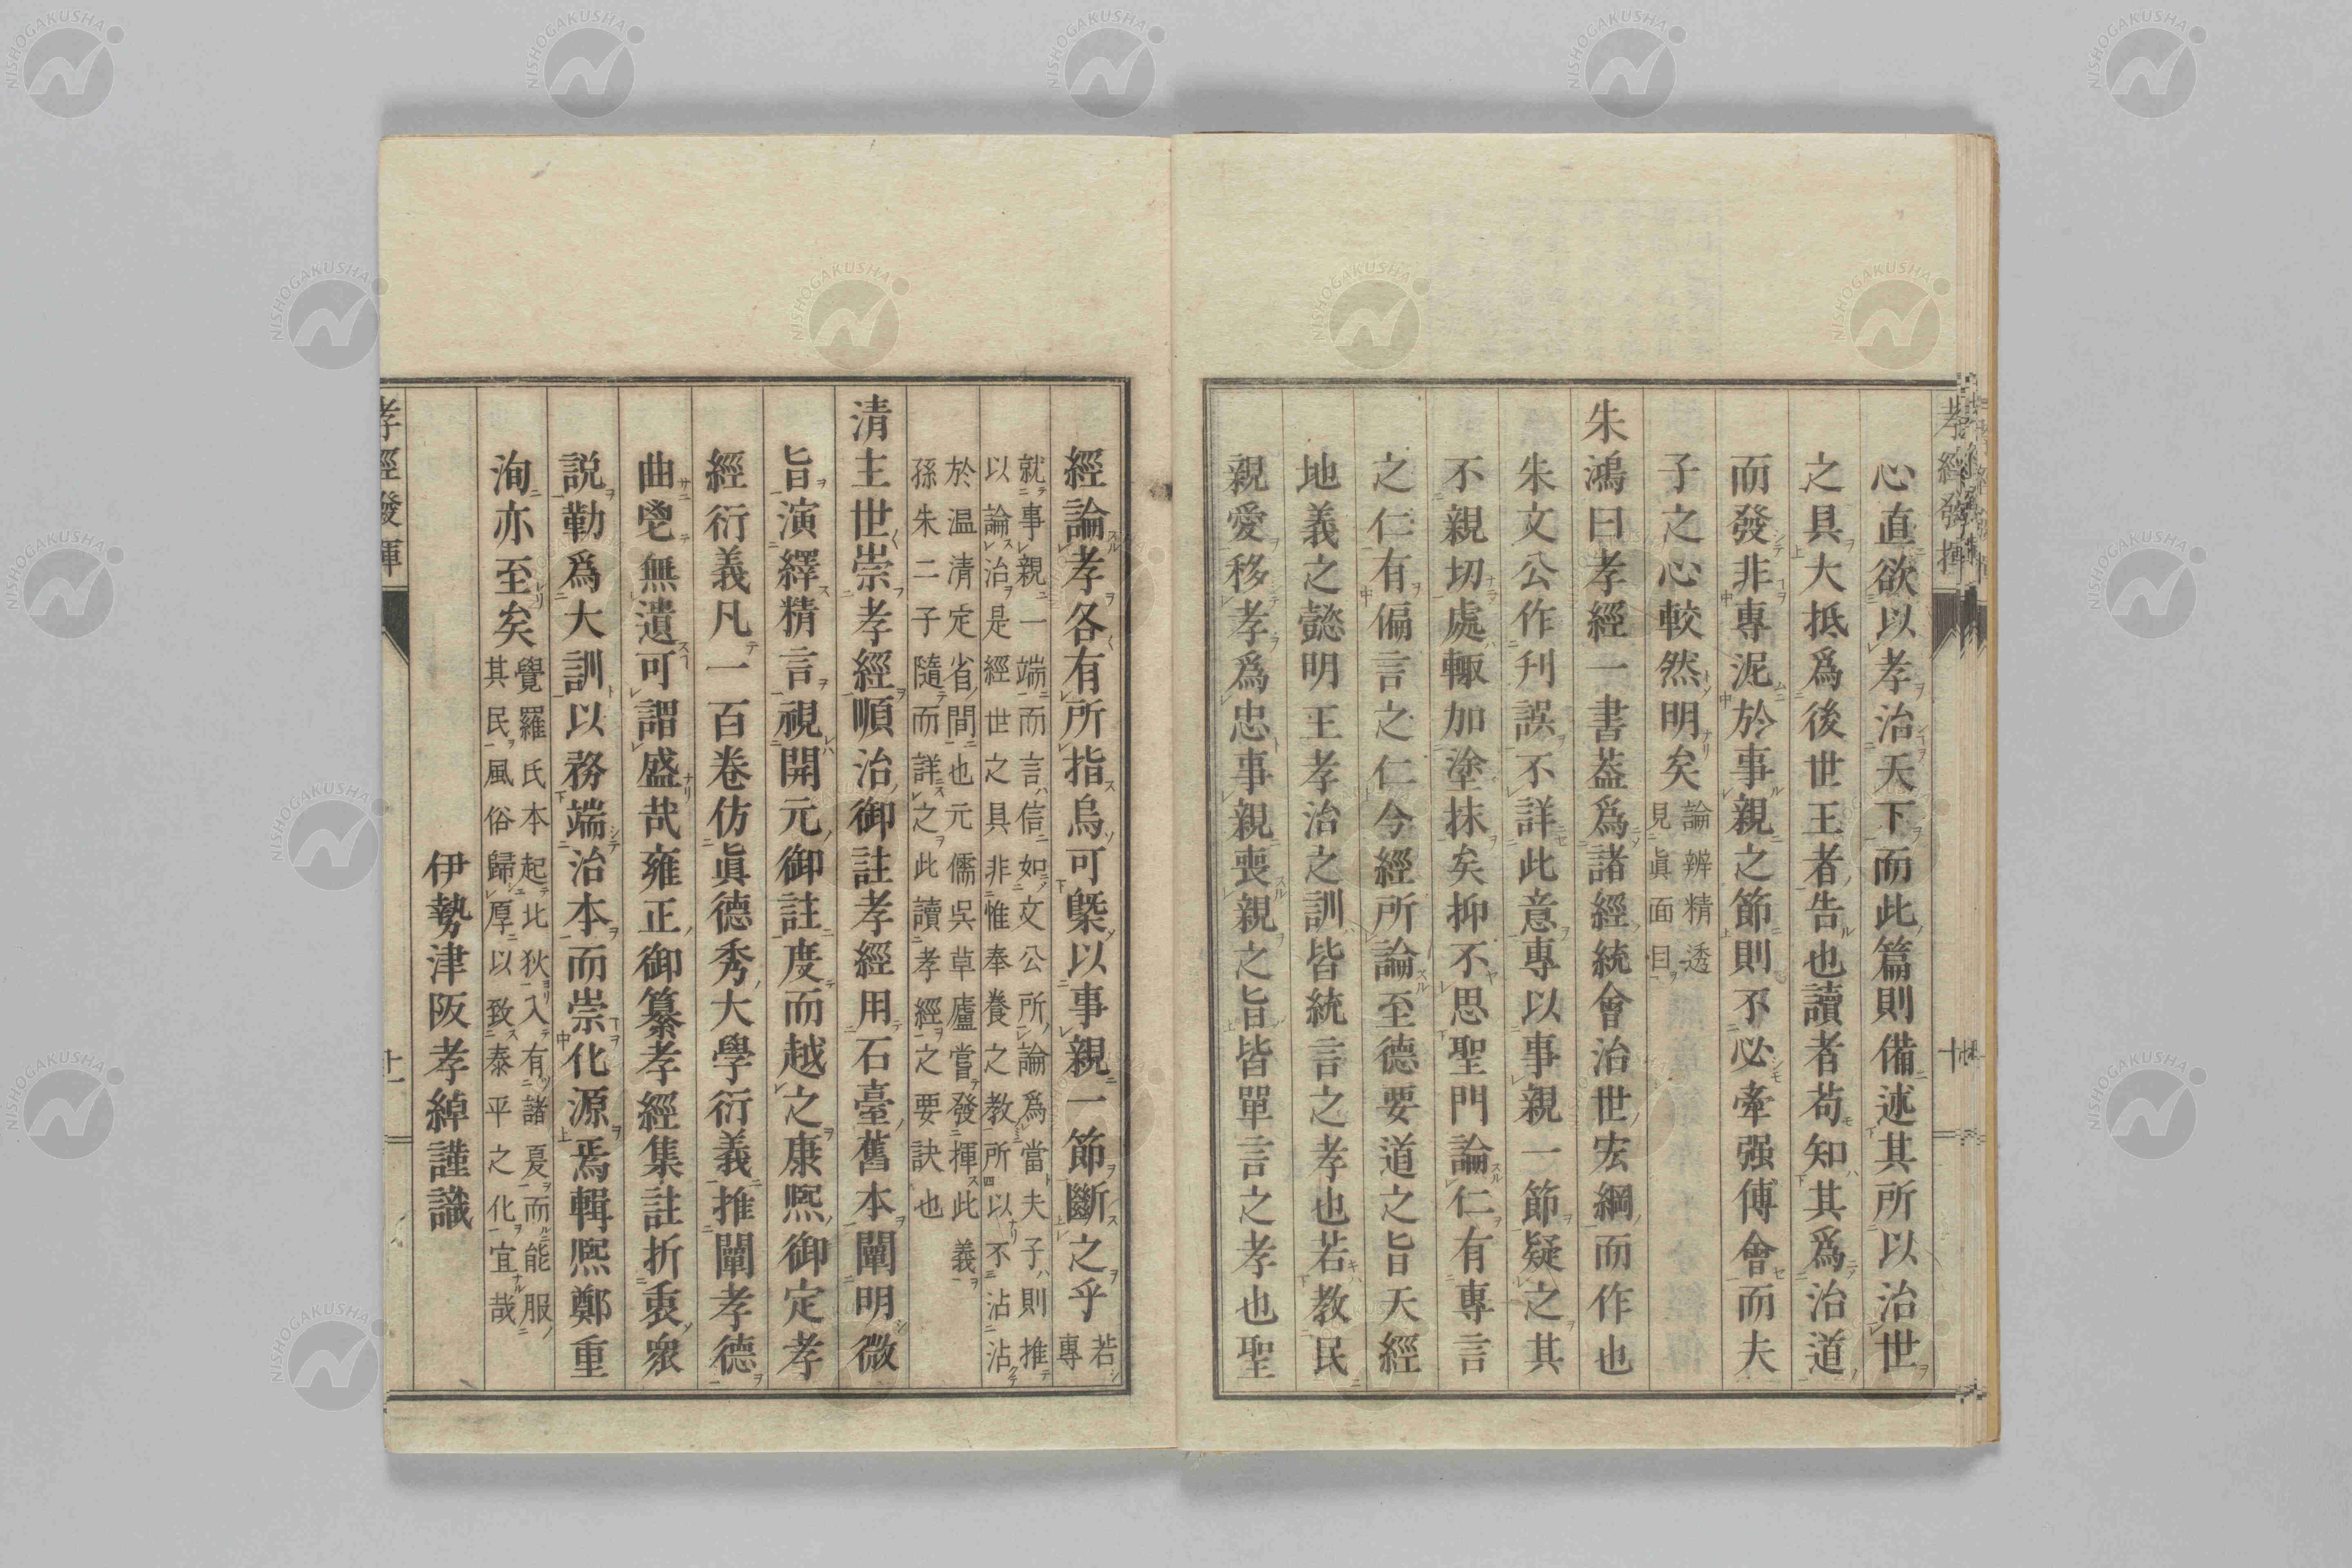 心直欲以孝治天下而此篇則備述其所以治世
之具大抵爲後世王者告也讀者苟知其爲治道
而發非專泥於事親之節則不必牽强傅會而夫
子之心較然明矣論辨精透
見眞面目
朱鴻曰孝經一書葢爲諸經統會治世宏綱而作也
朱文公作刋誤不詳此意專以事親一節疑之其
不親切處輙加塗抹矣抑不思聖門論仁有專言
之仁有偏言之仁今經所論至德要道之旨天經
地義之懿明王孝治之訓皆統言之孝也若教民
親愛移孝爲忠事親喪親之旨皆單言之孝也聖
經論孝各有所指烏可槩以事親一節斷之乎若
專
就事親一端而言信如文公所論爲當夫子則推
以論治是經世之具非惟奉養之教所以不沾沾
於温清定省間也元儒吳草廬嘗發揮此義
孫朱二子隨而詳之此讀孝經之要訣也
清主世崇孝經順治御註孝經用石臺舊本闡明微
旨演繹精言視開元御註度而越之康熙御定孝
經衍義凡一百卷仿眞德秀大學衍義推闡孝德
曲鬯無遺可謂盛哉雍正御纂孝經集註折衷衆
説勒爲大訓以務端治本而崇化源焉輯熙鄭重
洵亦至矣覺羅氏本起北狄入有諸夏而能服
其民風俗歸厚以致泰平之化宜哉
伊勢津阪孝綽謹識
孝經發揮
十一
孝經發揮
十
NISHOGAKUSHA